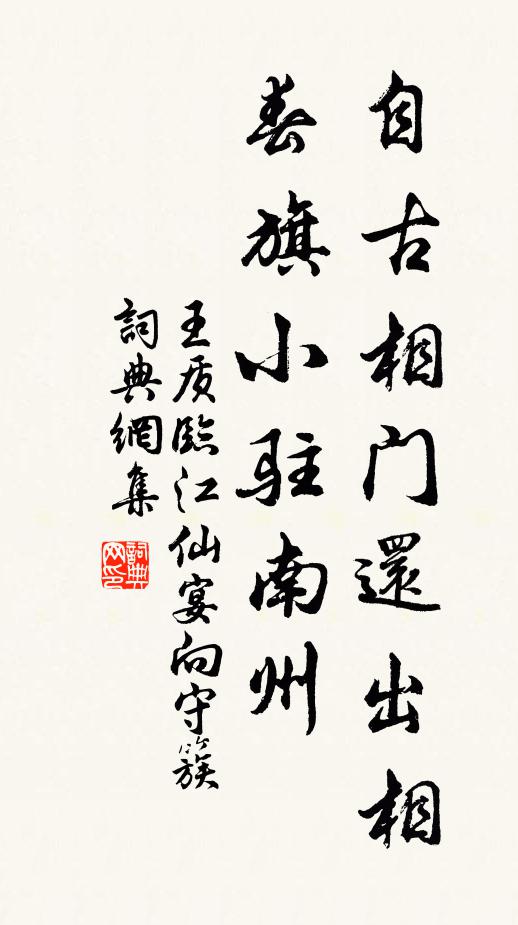 自古相门還出相
春旗小駐南州
王质臨江仙宴向守簇
詞典網集
詞典网印